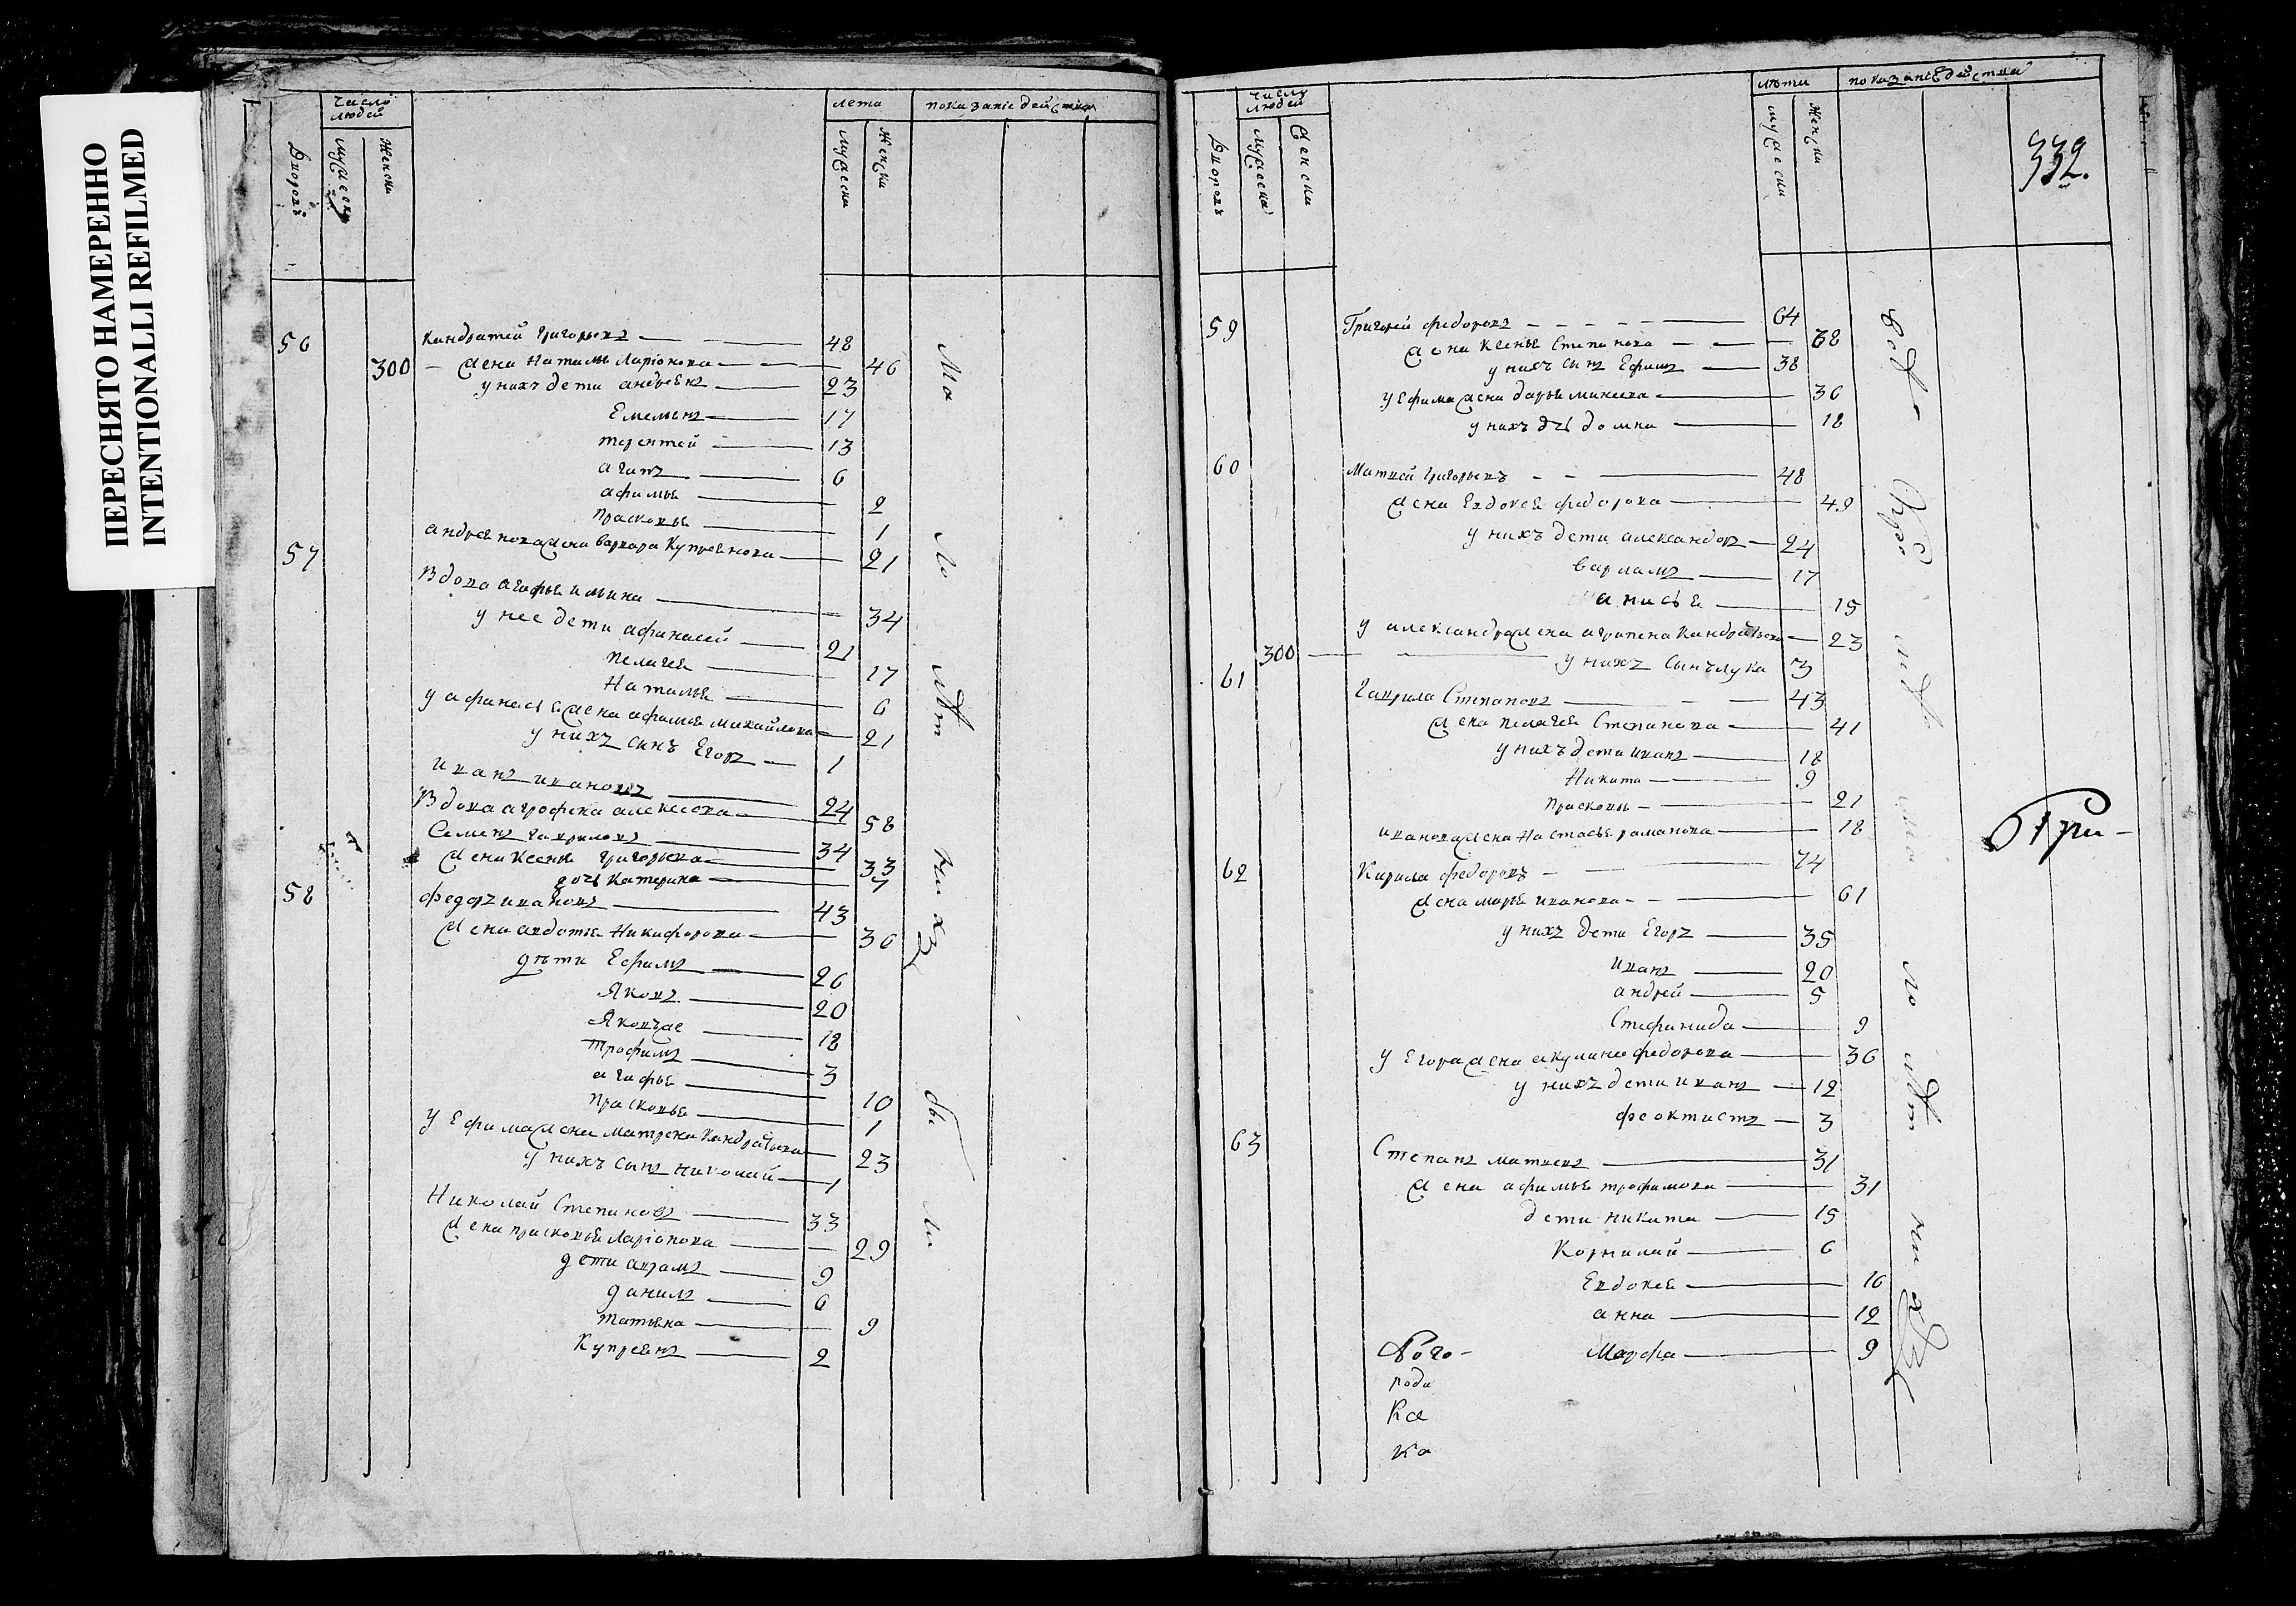 ПЕРЕСНЯТО НАМЕРЕННО
INTENTIONALLI REFILMED
число людей
лета
показание действия
дворовъ
мужеска
женска
мужеска
женска
56
Кандратей григорьевъ 48
300 жена Наталья Ларіонова 46
у нихъ дети андреянъ 23
Емельянъ 17
терентей 13
агапъ 6
афимья 2
прасковья 1
андреянова жена варвара Купреянова 21
57
Вдова агафья ильина 34
у нее дети афанасей 21
пелагея 17
Наталья 6
у афанасья жена афимья михайлова 21
у нихъ синъ Егоръ 1
иванъ ивановъ 24
Вдова агрофена алексеева 58
Семенъ гавриловъ 34
жена ксенья григорьева 33
дочь катерина 7
58
Федоръ ивановъ 43
жена авдотья Никифорова 36
дѣти Ефимъ 26
Яковъ 20
Яковъ же 18
трофимъ 3
агафья
прасковья 10
1
у Ефима жена матрена кандратьева 23
у нихъ сынъ николай 1
Николай Степановъ 33
жена прасковья ларіонова 29
дети аврамъ 9
данилъ 6
татьяна 9
Купреянъ 2
Ма ло лѣт ни хъ бы ли
число людей
лѣта
показаніе действа
332.
дворовъ
мужеска
женска
мужеска
женска
59
Григорей федоровъ 64
жена Ксенья Степанова 68
у нихъ сынъ Ефимъ 38
у Ефима жена дарья минеева 36
у нихъ дчь домна 18
60
Матвей григорьевъ 48
жена Евдокея федорова 49
у нихъ дети александръ 24
варламъ 17
анисья 15
у александра жена агрипена кандратьева 23
300 у нихъ сынъ лука 3
61
Гаврила Степановъ 43
жена пелагея Степанова 41
у нихъ дети иванъ 18
Никита 9
прасковья 21
иванова жена Настасья раманова 18
62
Кирила федоровъ 74
жена марья иванова 61
у нихъ дети Егоръ 35
иванъ 20
андрей 5
Стефанида 9
у Егора жена акулина федорова 36
у нихъ дети иванъ 12
феоктистъ 3
63
Степанъ матвеевъ 31
жена афимья трофимова 31
дети никита 15
Корнилай 6
Евдокея 16
анна 12
Марфа 9
Бого-
роди
ка
ло лѣт ни хъ
При-